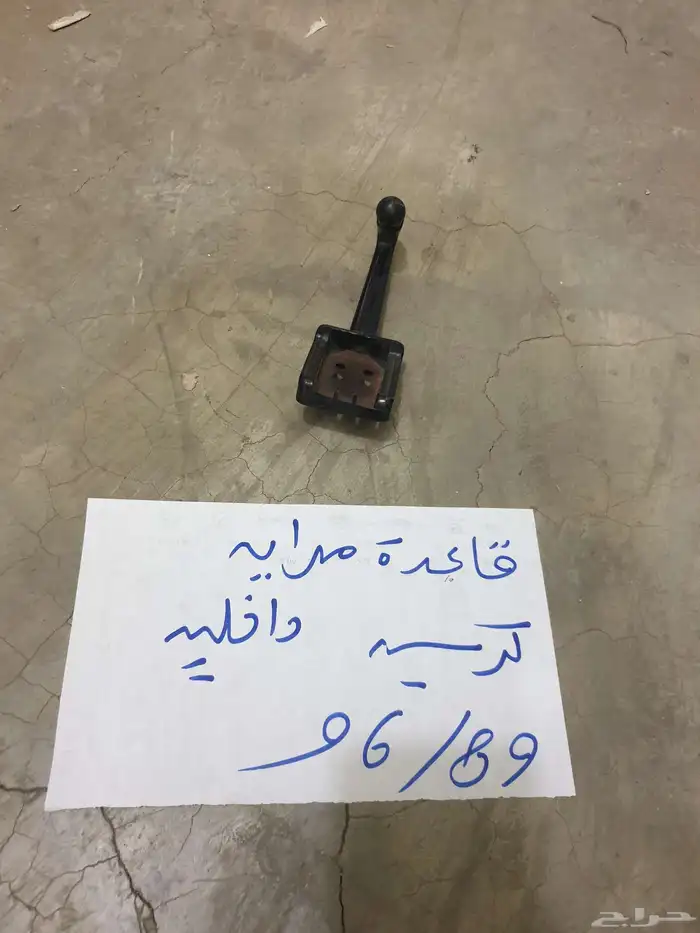 قاعدة مرايه
كرسيه داخليه
96/89 م
حراج